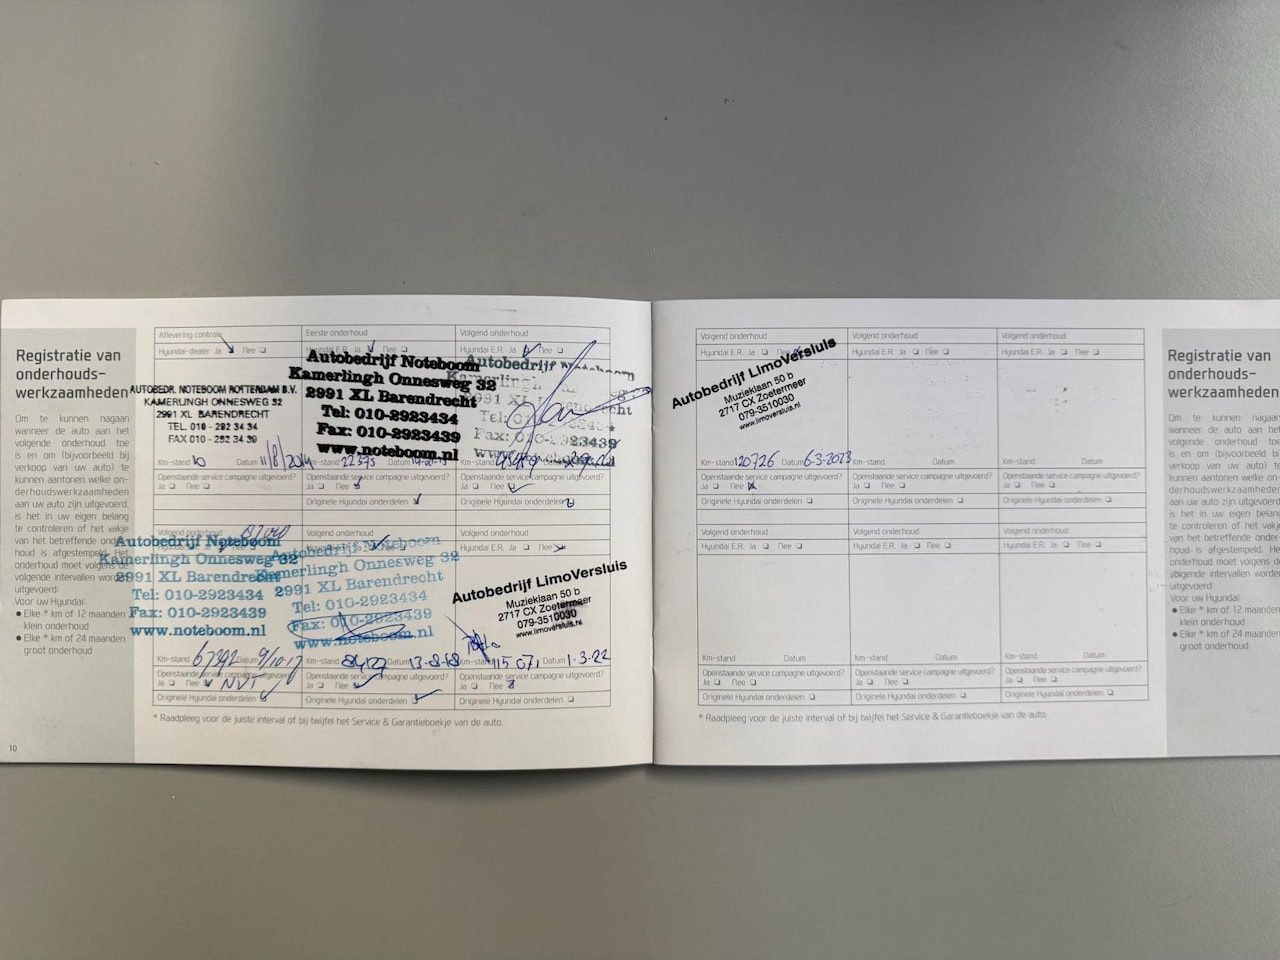 Registratie van
onderhouds-
werkzaamheden
Om te kunnen nagaan
wanneer de auto aan het
volgende onderhoud toe
is en om (bijvoorbeeld bij
verkoop van uw auto) te
kunnen aantonen welke on-
derhoudswerkzaamheden
aan uw auto zijn uitgevoerd,
is het in uw eigen belang
te controleren of het vakje
van het betreffende onder-
houd is afgestempeld. Het
onderhoud moet volgens de
volgende intervallen worden
uitgevoerd:
Voor uw Hyundai:
● Elke * km of 12 maanden
klein onderhoud
● Elke * km of 24 maanden
groot onderhoud
10
Aflevering controle
Hyundai-dealer Ja Nee
AUTOBEDR. NOTEBOOM ROTTERDAM B.V.
KAMERLINGH ONNESWEG 32
2991 XL BARENDRECHT
TEL 010 - 292 34 34
FAX 010 - 292 34 39
Km-stand 10 Datum 11/8/2014
Openstaande service campagne uitgevoerd?
Ja Nee
Eerste onderhoud
Hyundai E.R. Ja Nee
Autobedrijf Noteboom
Kamerlingh Onnesweg 32
2991 XL Barendrecht
Tel: 010-2923434
Fax: 010-2923439
www.noteboom.nl
Km-stand 22575 Datum
Openstaande service campagne uitgevoerd?
Ja Nee
Originele Hyundai onderdelen
Volgend onderhoud
Hyundai E.R. Ja Nee
Autobedrijf
Kamerlingh
Fax: 010-2923439
Openstaande service campagne uitgevoerd?
Ja Nee
Originele Hyundai onderdelen
Volgend onderhoud
Autobedrijf Noteboom
Kamerlingh Onnesweg 32
2991 XL Barendrecht
Tel: 010-2923434
Fax: 010-2923439
www.noteboom.nl
Km-stand 67392 Datum 9/10-17
Openstaande service campagne uitgevoerd?
Ja Nee NVT
Originele Hyundai onderdelen
Autobedrijf Noteboom
Kamerlingh Onnesweg 32
2991 XL Barendrecht
Tel: 010-2923434
Fax: 010-2923439
www.noteboom.nl
Km-stand Datum 13-8-18
Openstaande service campagne uitgevoerd?
Ja Nee
Originele Hyundai onderdelen
Volgend onderhoud
Hyundai E.R. Ja Nee
Autobedrijf LimoVersluis
Muzieklaan 50 b
2717 CX Zoetermeer
079-3510030
www.limoversluis.nl
Km-stand 115 071 Datum 1-3-22
Openstaande service campagne uitgevoerd?
Ja Nee
Originele Hyundai onderdelen
* Raadpleeg voor de juiste interval of bij twijfel het Service & Garantieboekje van de auto.
Volgend onderhoud
Hyundai E.R. Ja Nee
Autobedrijf LimoVersluis
Muzieklaan 50 b
2717 CX Zoetermeer
079-3510030
www.limoversluis.nl
Km-stand 120726 Datum 6-3-2023
Openstaande service campagne uitgevoerd?
Ja Nee
Originele Hyundai onderdelen
Volgend onderhoud
Hyundai E.R. Ja Nee
Km-stand Datum
Openstaande service campagne uitgevoerd?
Ja Nee
Originele Hyundai onderdelen
Volgend onderhoud
Hyundai E.R. Ja Nee
Km-stand Datum
Openstaande service campagne uitgevoerd?
Ja Nee
Originele Hyundai onderdelen
Volgend onderhoud
Hyundai E.R. Ja Nee
Km-stand Datum
Openstaande service campagne uitgevoerd?
Ja Nee
Originele Hyundai onderdelen
Volgend onderhoud
Hyundai E.R. Ja Nee
Km-stand Datum
Openstaande service campagne uitgevoerd?
Ja Nee
Originele Hyundai onderdelen
Volgend onderhoud
Hyundai E.R. Ja Nee
Km-stand Datum
Openstaande service campagne uitgevoerd?
Ja Nee
Originele Hyundai onderdelen
* Raadpleeg voor de juiste interval of bij twijfel het Service & Garantieboekje van de auto.
Registratie van
onderhouds-
werkzaamheden
Om te kunnen nagaan
wanneer de auto aan het
volgende onderhoud toe
is en om (bijvoorbeeld bij
verkoop van uw auto) te
kunnen aantonen welke on-
derhoudswerkzaamheden
aan uw auto zijn uitgevoerd,
is het in uw eigen belang
te controleren of het vakje
van het betreffende onder-
houd is afgestempeld. Het
onderhoud moet volgens de
volgende intervallen worden
uitgevoerd:
Voor uw Hyundai:
● Elke * km of 12 maanden
klein onderhoud
● Elke * km of 24 maanden
groot onderhoud